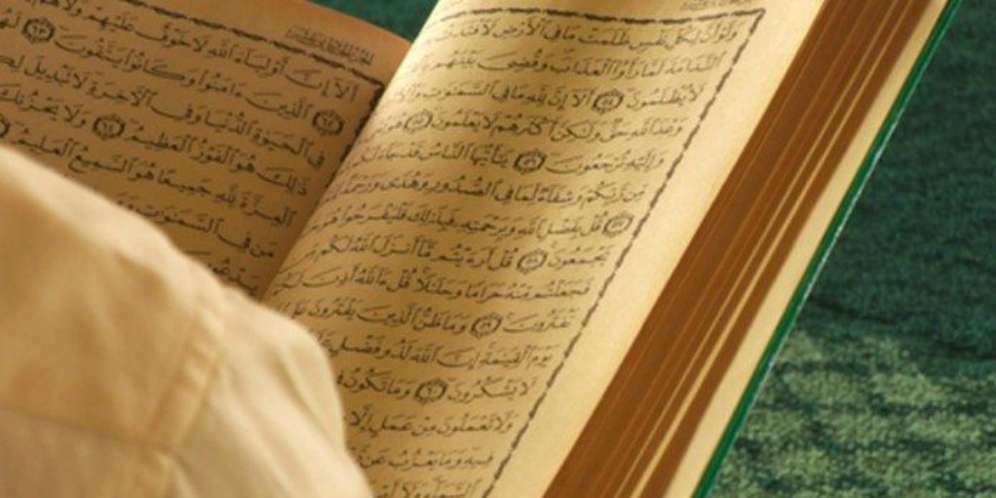 وَلَوْ أَنَّ لِكُلِّ نَفْسٍ ظَلَمَتْ مَا فِي الْأَرْضِ لَافْتَدَتْ
النَّدَامَةَ لَمَّا رَأَوُا الْعَذَابَ وَقُضِيَ بَيْنَهُمْ
لَا يُظْلَمُونَ ٥٤ أَلَا إِنَّ لِلَّهِ مَا فِي السَّمَاوَاتِ وَالْأَ
وَعْدَ اللَّهِ حَقٌّ وَلَكِنَّ أَكْثَرَهُمْ لَا يَعْلَمُونَ ٥٥ هُوَ
وَإِلَيْهِ تُرْجَعُونَ ٥٦ يَا أَيُّهَا النَّاسُ قَدْ جَاءَتْكُمْ
مِنْ رَبِّكُمْ وَشِفَاءٌ لِمَا فِي الصُّدُورِ وَهُدًى وَرَحْمَةٌ
٥٧ قُلْ بِفَضْلِ اللَّهِ وَبِرَحْمَتِهِ فَبِذَلِكَ فَلْيَفْرَحُوا هُوَ
يَجْمَعُونَ ٥٨ قُلْ أَرَأَيْتُمْ مَا أَنْزَلَ اللَّهُ لَكُمْ
فَجَعَلْتُمْ مِنْهُ حَرَامًا وَحَلَالًا قُلْ آللَّهُ أَذِنَ لَكُمْ
تَفْتَرُونَ ٥٩ وَمَا ظَنُّ الَّذِينَ يَفْتَرُونَ عَلَى
يَوْمَ الْقِيَامَةِ إِنَّ اللَّهَ لَذُو فَضْلٍ
لَا يَشْكُرُونَ ٦٠ وَمَا تَكُونُ
وَلَا تَعْمَلُونَ مِنْ عَمَلٍ إِلَّا
فِيهِ وَمَا يَعْزُبُ عَنْ
السَّمَاءِ وَلَا
أَلَا إِنَّ أَوْلِيَاءَ اللَّهِ لَا خَوْفٌ عَلَيْهِمْ وَلَا هُمْ
٦٢ الَّذِينَ آمَنُوا وَكَانُوا يَتَّقُونَ ٦٣ لَهُمُ
فِي الْحَيَاةِ الدُّنْيَا وَفِي الْآخِرَةِ لَا تَبْدِيلَ
ذَلِكَ هُوَ الْفَوْزُ الْعَظِيمُ ٦٤ وَلَا يَحْزُنْكَ
الْعِزَّةَ لِلَّهِ جَمِيعًا هُوَ السَّمِيعُ الْعَلِيمُ
مَنْ فِي السَّمَاوَاتِ وَمَنْ